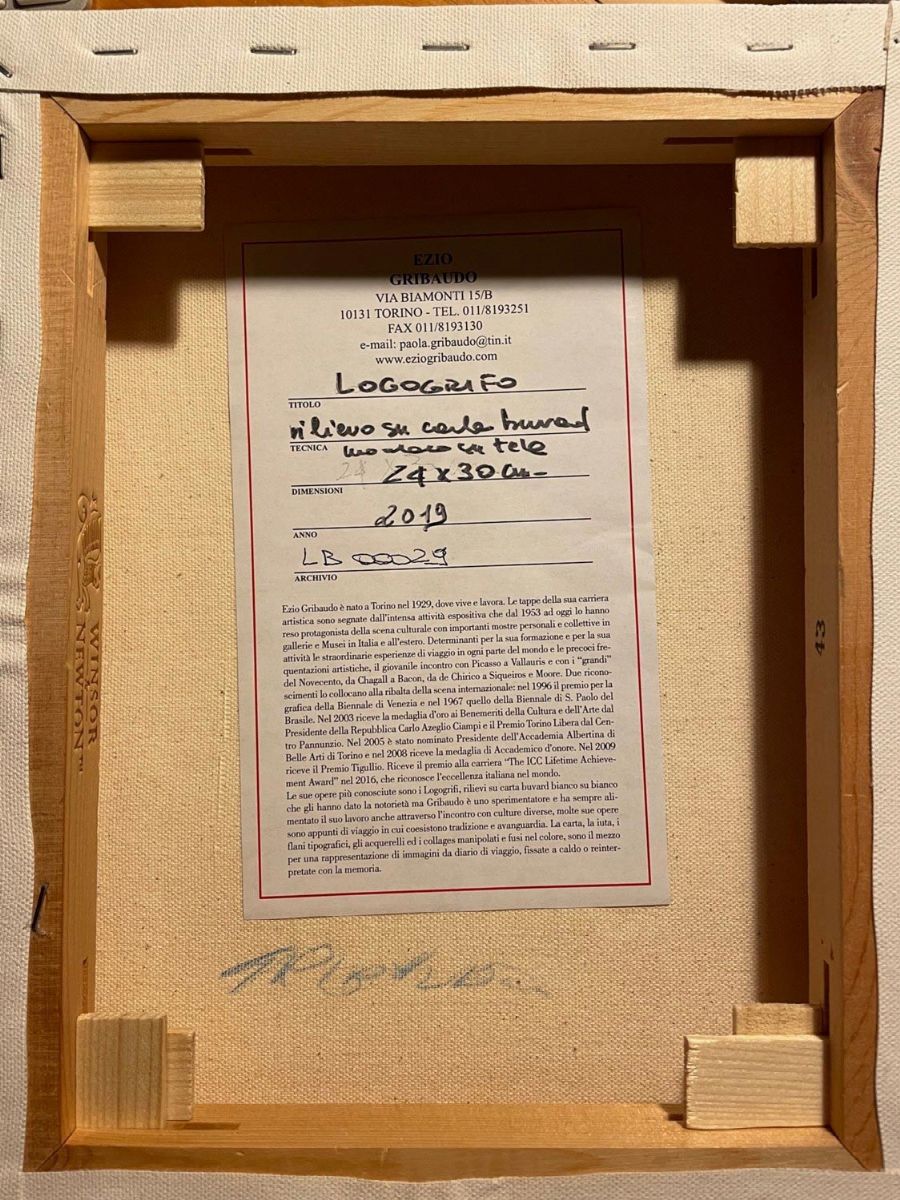 EZIO
GRIBAUDO
VIA BIAMONTI 15/B
10131 TORINO - TEL. 011/8193251
FAX 011/8193130
e-mail: paola.gribaudo@tin.it
www.eziogribaudo.com
LOGOGRIFO
TITOLO
rilievo su carta buvard
TECNICA
su tela
24 x 30 cm
DIMENSIONI
2019
ANNO
LB 00029
ARCHIVIO
Ezio Gribaudo è nato a Torino nel 1929, dove vive e lavora. Le tappe della sua carriera
artistica sono segnate dall'intensa attività espositiva che dal 1953 ad oggi lo hanno
reso protagonista della scena culturale con importanti mostre personali e collettive in
gallerie e Musei in Italia e all'estero. Determinanti per la sua formazione e per la sua
attività le straordinarie esperienze di viaggio in ogni parte del mondo e le precoci fre-
quentazioni artistiche, il giovanile incontro con Picasso a Vallauris e con i “grandi”
del Novecento, da Chagall a Bacon, da de Chirico a Siqueiros e Moore. Due ricono-
scimenti lo collocano alla ribalta della scena internazionale: nel 1996 il premio per la
grafica della Biennale di Venezia e nel 1967 quello della Biennale di S. Paolo del
Brasile. Nel 2003 riceve la medaglia d'oro ai Benemeriti della Cultura e dell'Arte dal
Presidente della Repubblica Carlo Azeglio Ciampi e il Premio Torino Libera dal Cen-
tro Pannunzio. Nel 2005 è stato nominato Presidente dell'Accademia Albertina di
Belle Arti di Torino e nel 2008 riceve la medaglia di Accademico d'onore. Nel 2009
riceve il Premio Tigullio. Riceve il premio alla carriera “The ICC Lifetime Achieve-
ment Award” nel 2016, che riconosce l'eccellenza italiana nel mondo.
Le sue opere più conosciute sono i Logogrifi, rilievi su carta buvard bianco su bianco
che gli hanno dato la notorietà ma Gribaudo è uno sperimentatore e ha sempre ali-
mentato il suo lavoro anche attraverso l'incontro con culture diverse, molte sue opere
sono appunti di viaggio in cui coesistono tradizione e avanguardia. La carta, la iuta, i
flani tipografici, gli acquerelli ed i collages manipolati e fusi nel colore, sono il mezzo
per una rappresentazione di immagini da diario di viaggio, fissate a caldo o reinter-
pretate con la memoria.
WINSOR
NEWTON™
43